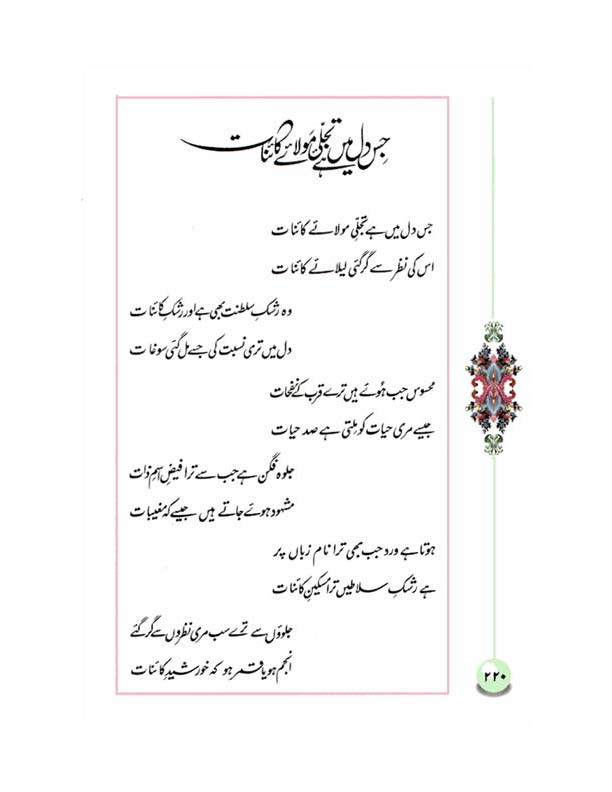 جس دل میں ہے تجلّیٔ مولائے کائنات
جس دل میں ہے تجلّیٔ مولائے کائنات
اس کی نظر سے گر گئی لیلائے کائنات
وہ رشکِ سلطنت بھی ہے اور رشکِ کائنات
دل میں تری نسبت کی جسے مل گئی سوغات
محسوس جب ہُوئے ہیں ترے قرب کے نفحات
جیسے مری حیات کو مِلتی ہے صد حیات
جلوہ فگن ہے جب سے ترا فیضِ اسمِ ذات
مشہود ہوئے جاتے ہیں جیسے کہ مغیبات
ہوتا ہے ورد جب بھی ترا نام زباں پر
ہے رشکِ سلاطیں ترا مسکینِ کائنات
جلوؤں سے ترے سب مری نظروں سے گر گئے
انجم ہو یا قمر ہو کہ خورشیدِ کائنات
۲۲۰